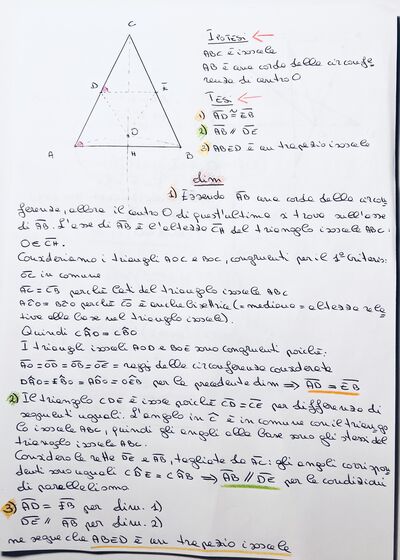 C
D
E
O
A
H
B
IPOTESI
ABC È isoscele
AB È una corda della circonfe
renza di centro O
TESI
1) AD ≅ EB
2) AB // DE
3) ABED È un trapezio isoscele
dim
1) Essendo AB una corda della circon
ferenza, allora il centro O di quest'ultima si trova sull'asse
di AB. L'asse di AB è l'altezza CH del triangolo isoscele ABC.
O∈CH.
Consideriamo i triangoli AOC e BOC, congruenti per il 1° criterio:
OC in comune
AC = CB perché lati del triangolo isoscele ABC
AĈO = BĈO perché CO è anche bisettrice (= mediana = altezza rela
tive alla base nel triangolo isoscele).
Quindi CÂO = CB̂O
I triangoli isosceli AOD e BOE sono congruenti poiché:
AO = OD = OB = OE = raggi della circonferenza considerata
DÂO = EB̂O = AD̂O = OÊB per la precedente dim ⇒ AD = EB
2) Il triangolo CDE è isoscele poiché CD = CE per differenza di
segmenti uguali. L'angolo in Ĉ è in comune con il triango
lo isoscele ABC, quindi gli angoli alla base sono gli stessi del
triangolo isoscele ABC.
Considero le rette DE e AB, tagliate da AC: gli angoli corrispon
denti sono uguali CD̂E = CÂB ⇒ AB // DE per le condizioni
di parallelismo
3) AD = EB per dim. 1)
DE // AB per dim. 2)
ne segue che ABED è un trapezio isoscele